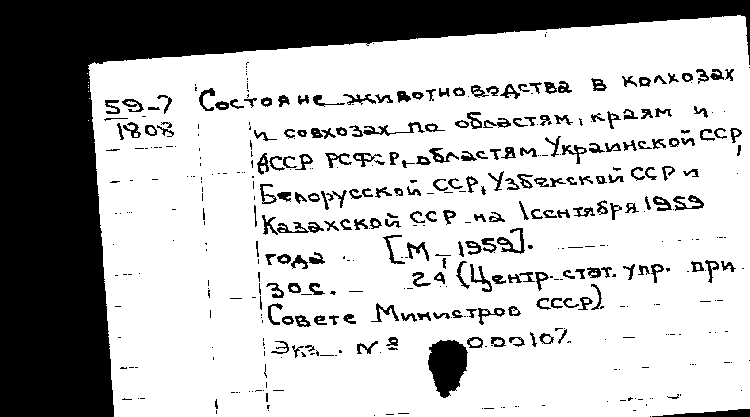 59-7 Состояне животноводства в колхозах
1808 и совхозах по областям, краям и
АССР РСФСР, областям Украинской ССР,
Белорусской ССР, Узбекской ССР и
Казахской ССР на 1 сентября 1959
года [М., 1959].
30 с. 24 (Центр. стат. упр. при
Совете Министров СССР)
Экз. № 000107